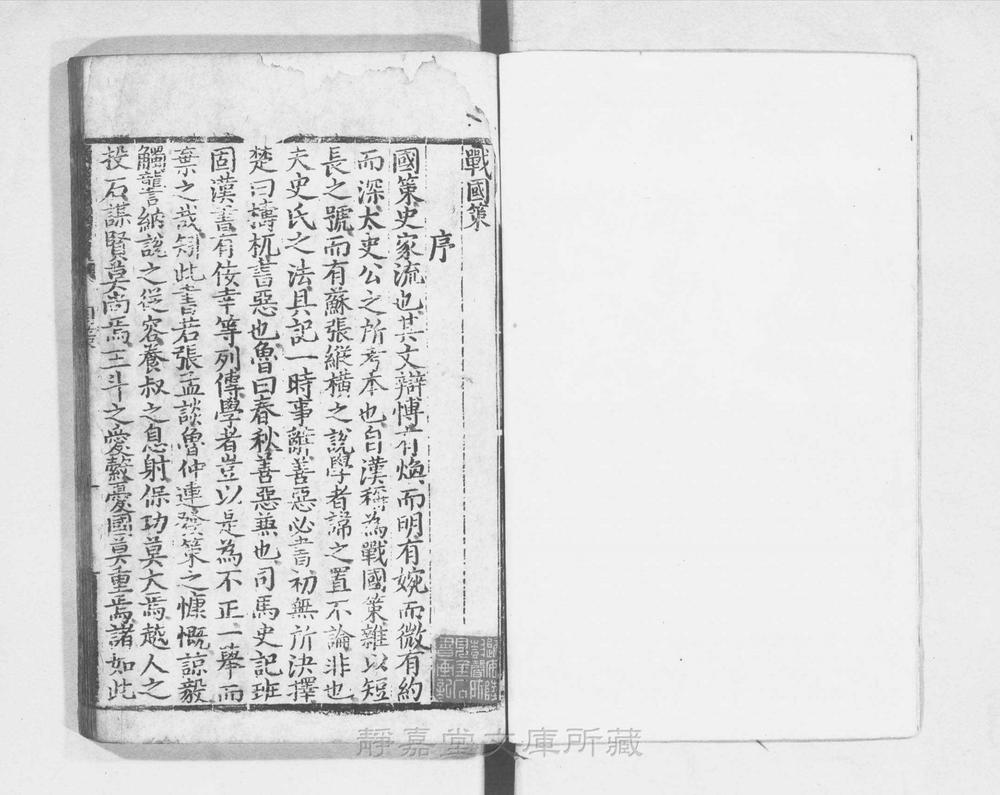 戰國策
序
國策史家流也其文辯博有煥而明有婉而微有約
而深太史公之所考本也自漢稱為戰國策雜以短
長之號而有蘇張縱橫之說學者諱之置不論非也
夫史氏之法具記一時事辭善惡必書初無所決擇
楚曰檮杌書惡也魯曰春秋善惡兼也司馬史記班
固漢書有佞幸等列傳學者豈以是為不正一舉而
棄之哉矧此書若張孟談魯仲連發策之慷慨諒毅
觸讋納說之從容養叔之息射保功莫大焉越人之
投石謀賢莫尚焉王斗之愛縠憂國莫重焉諸如此
靜嘉堂文庫所藏